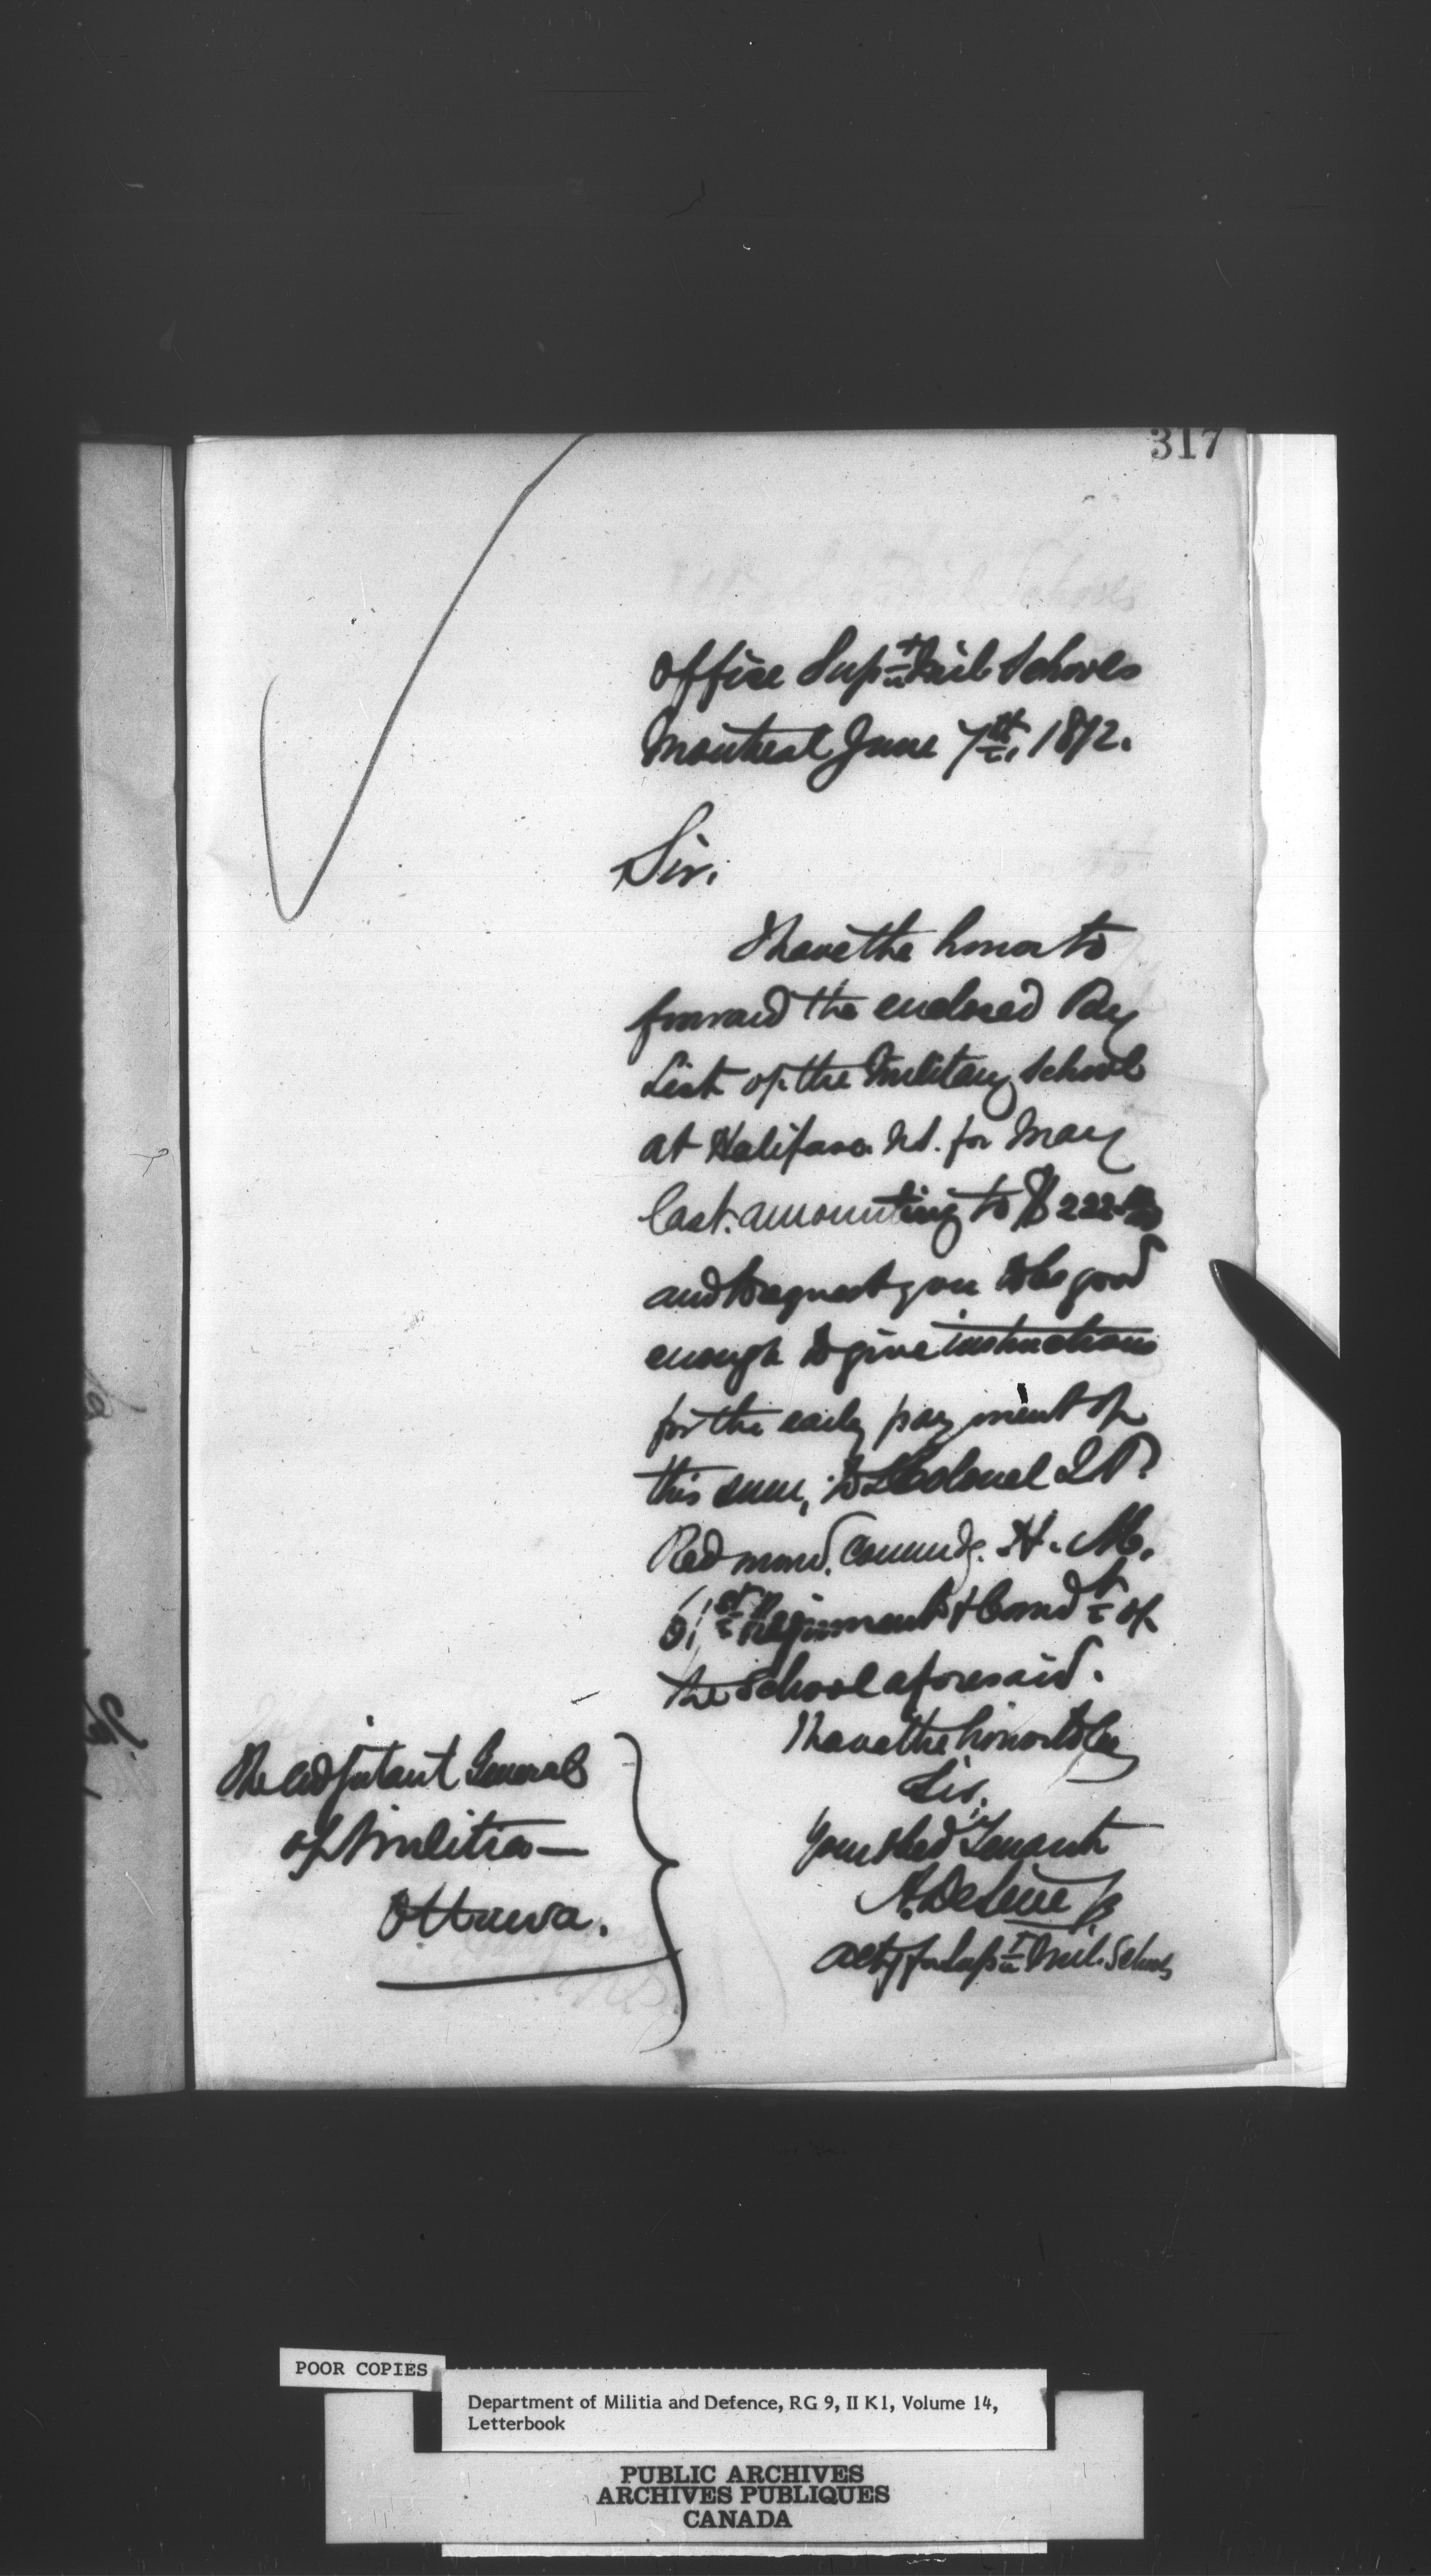 317
Office Supt. Mil. Schools
Montreal June 7th, 1872.
Sir,
I have the honor to
forward the enclosed Pay
List of the Military School
at Halifax N.S. for May
last. amounting to $222.
and to request you to be good
enough to give instructions
for the early payment of
this sum, to Lt Colonel
Redmond. Commdg. H. M.
61st Regiment & Comdt of
the School aforesaid.
I have the honor to be
Sir,
Your Obed Servant
Actg for Supt Mil. Schools
The Adjutant General
of Militia —
Ottawa.
POOR COPIES
Department of Militia and Defence, RG 9, II K1, Volume 14,
Letterbook
PUBLIC ARCHIVES
ARCHIVES PUBLIQUES
CANADA